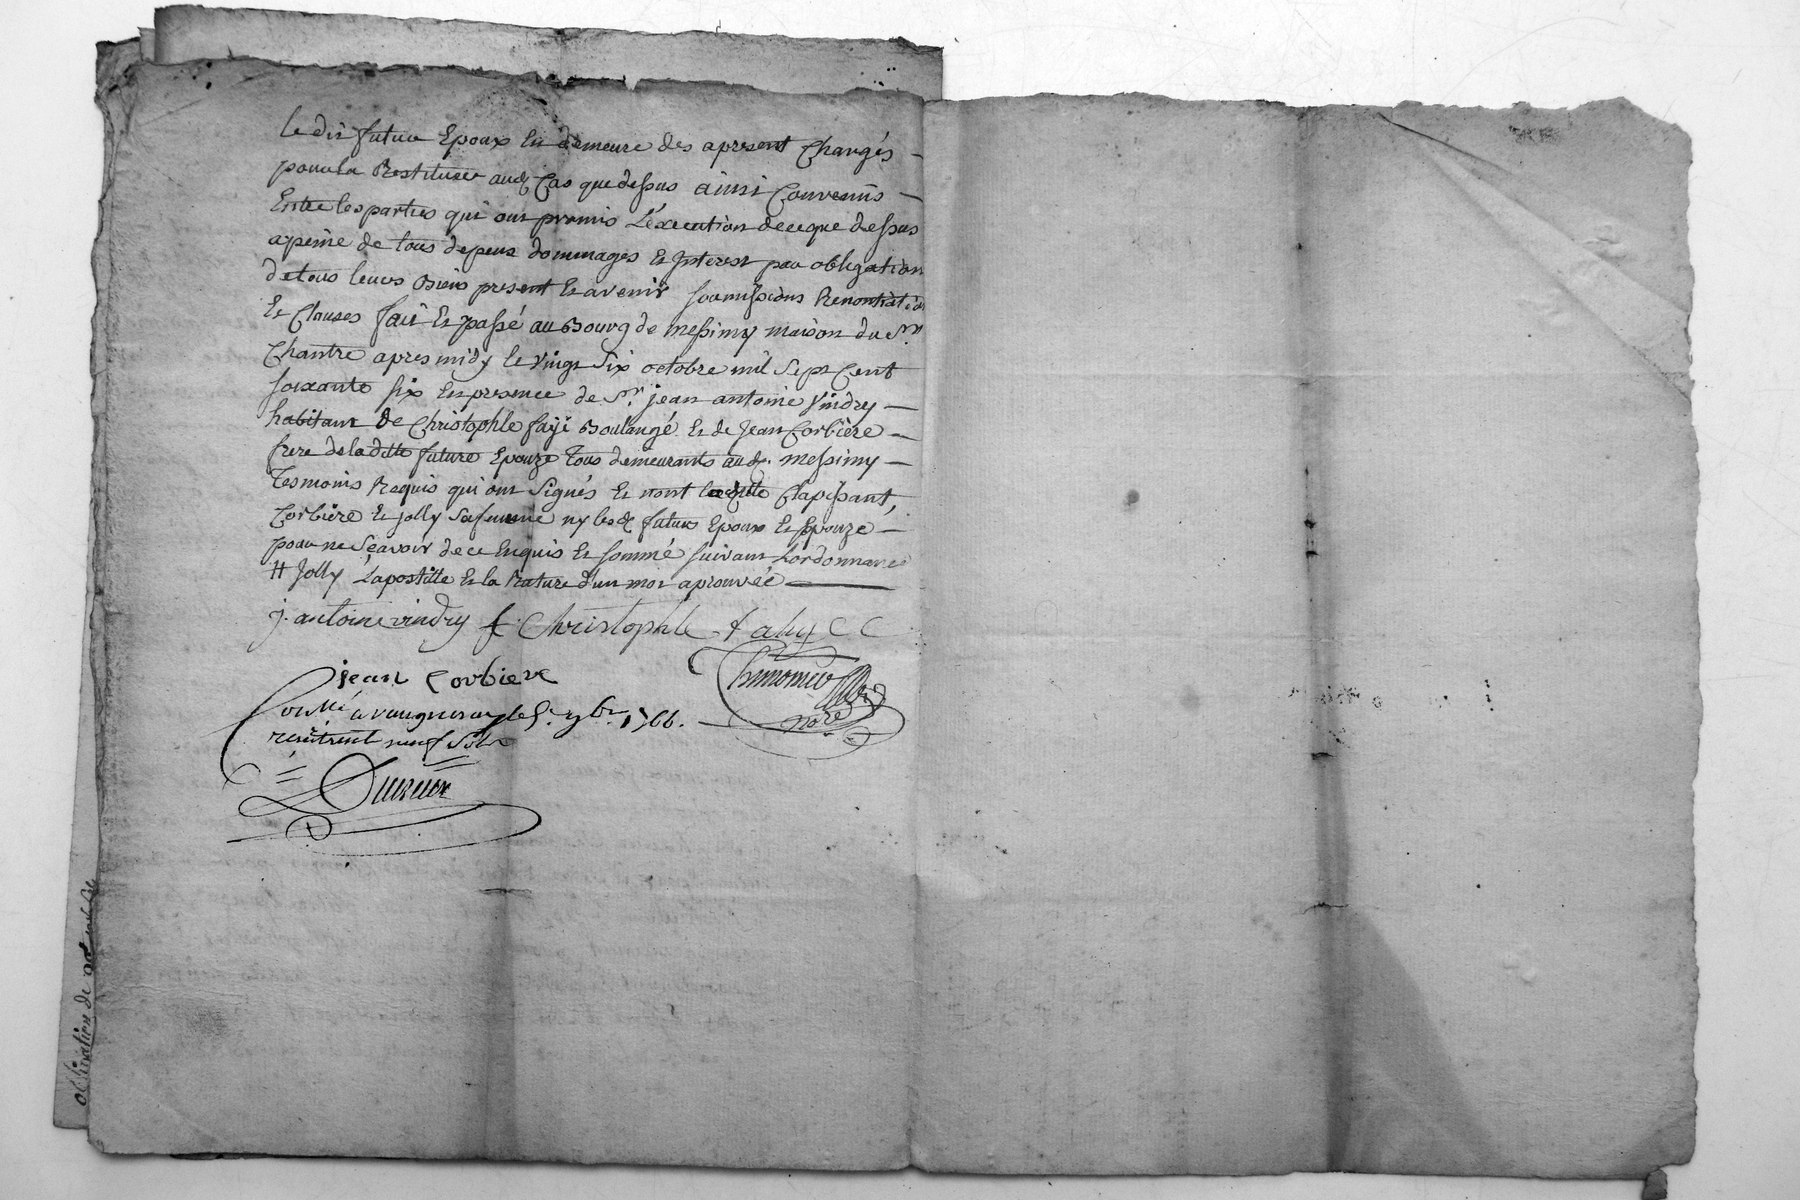 le dit futur Epoux Et demeure des apresent Chargés
pour la Restituer aud. Cas que dessus ainsi Convenus
Entre les parties qui ont promis L'éxecution de ce que dessus
apeine de tous depens dommages Et Interest par obligation
de tous leurs Biens present Et avenir soumissions Renontiation
Et Clauses fait Et passé au Bourg de messimy maison du Sr.
Chantre apres midy le vingt Six octobre mil Sept Cent
soixante six En presence de Sr. jean antoine Vindry
habitant de Christophle fayi Boulangé Et de Jean Corbière
frere de la ditte future Epouze Tous demeurants aud. messimy
Tesmoins Requis qui ont Signés Et nont laditte Clapisant,
Corbière Et jolly sa femme ny lesd. futurs Epoux Et Epouze
pour ne Sçavoir de ce Enquis Et sommé suivant Lordonnance
# Jolly L'apostille Et la Rature d'un mot aprouvée
j. antoine vindry f Christophle
jean Corbiere
Con.lle a vaugneray le 5. 9bre 1766.
neuf Sols